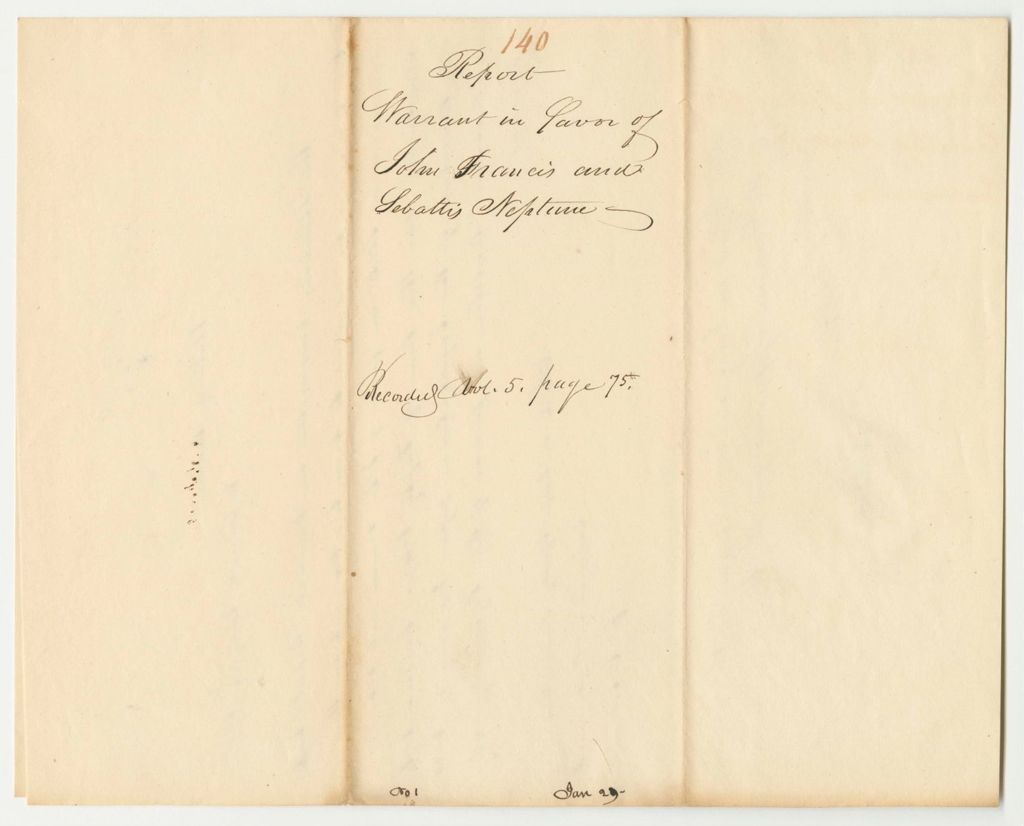 140
Report
Warrant in favor of
John Francis and
Sebattis Neptune
Recorded Vol. 5. page 75.
No 1
Jan 29